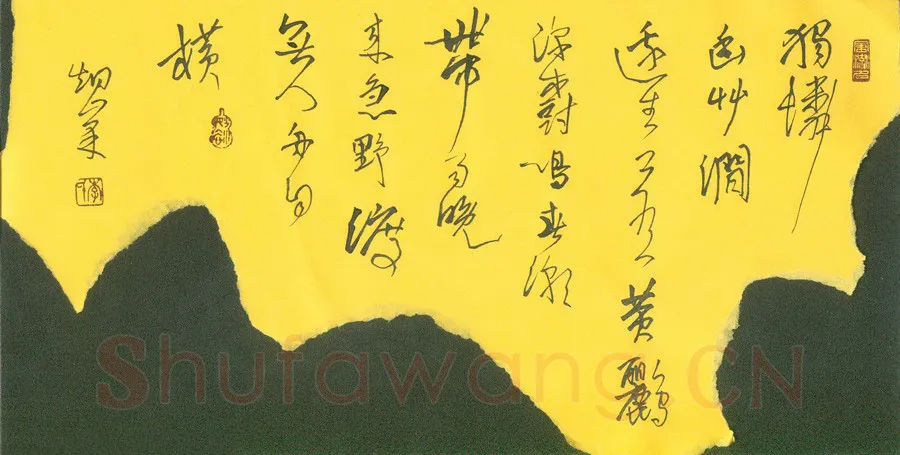 獨憐
幽草澗
邊生上有黃鸝
深樹鳴春潮
帶雨晚
來急野渡
無人舟自
橫
Shufawang.CN